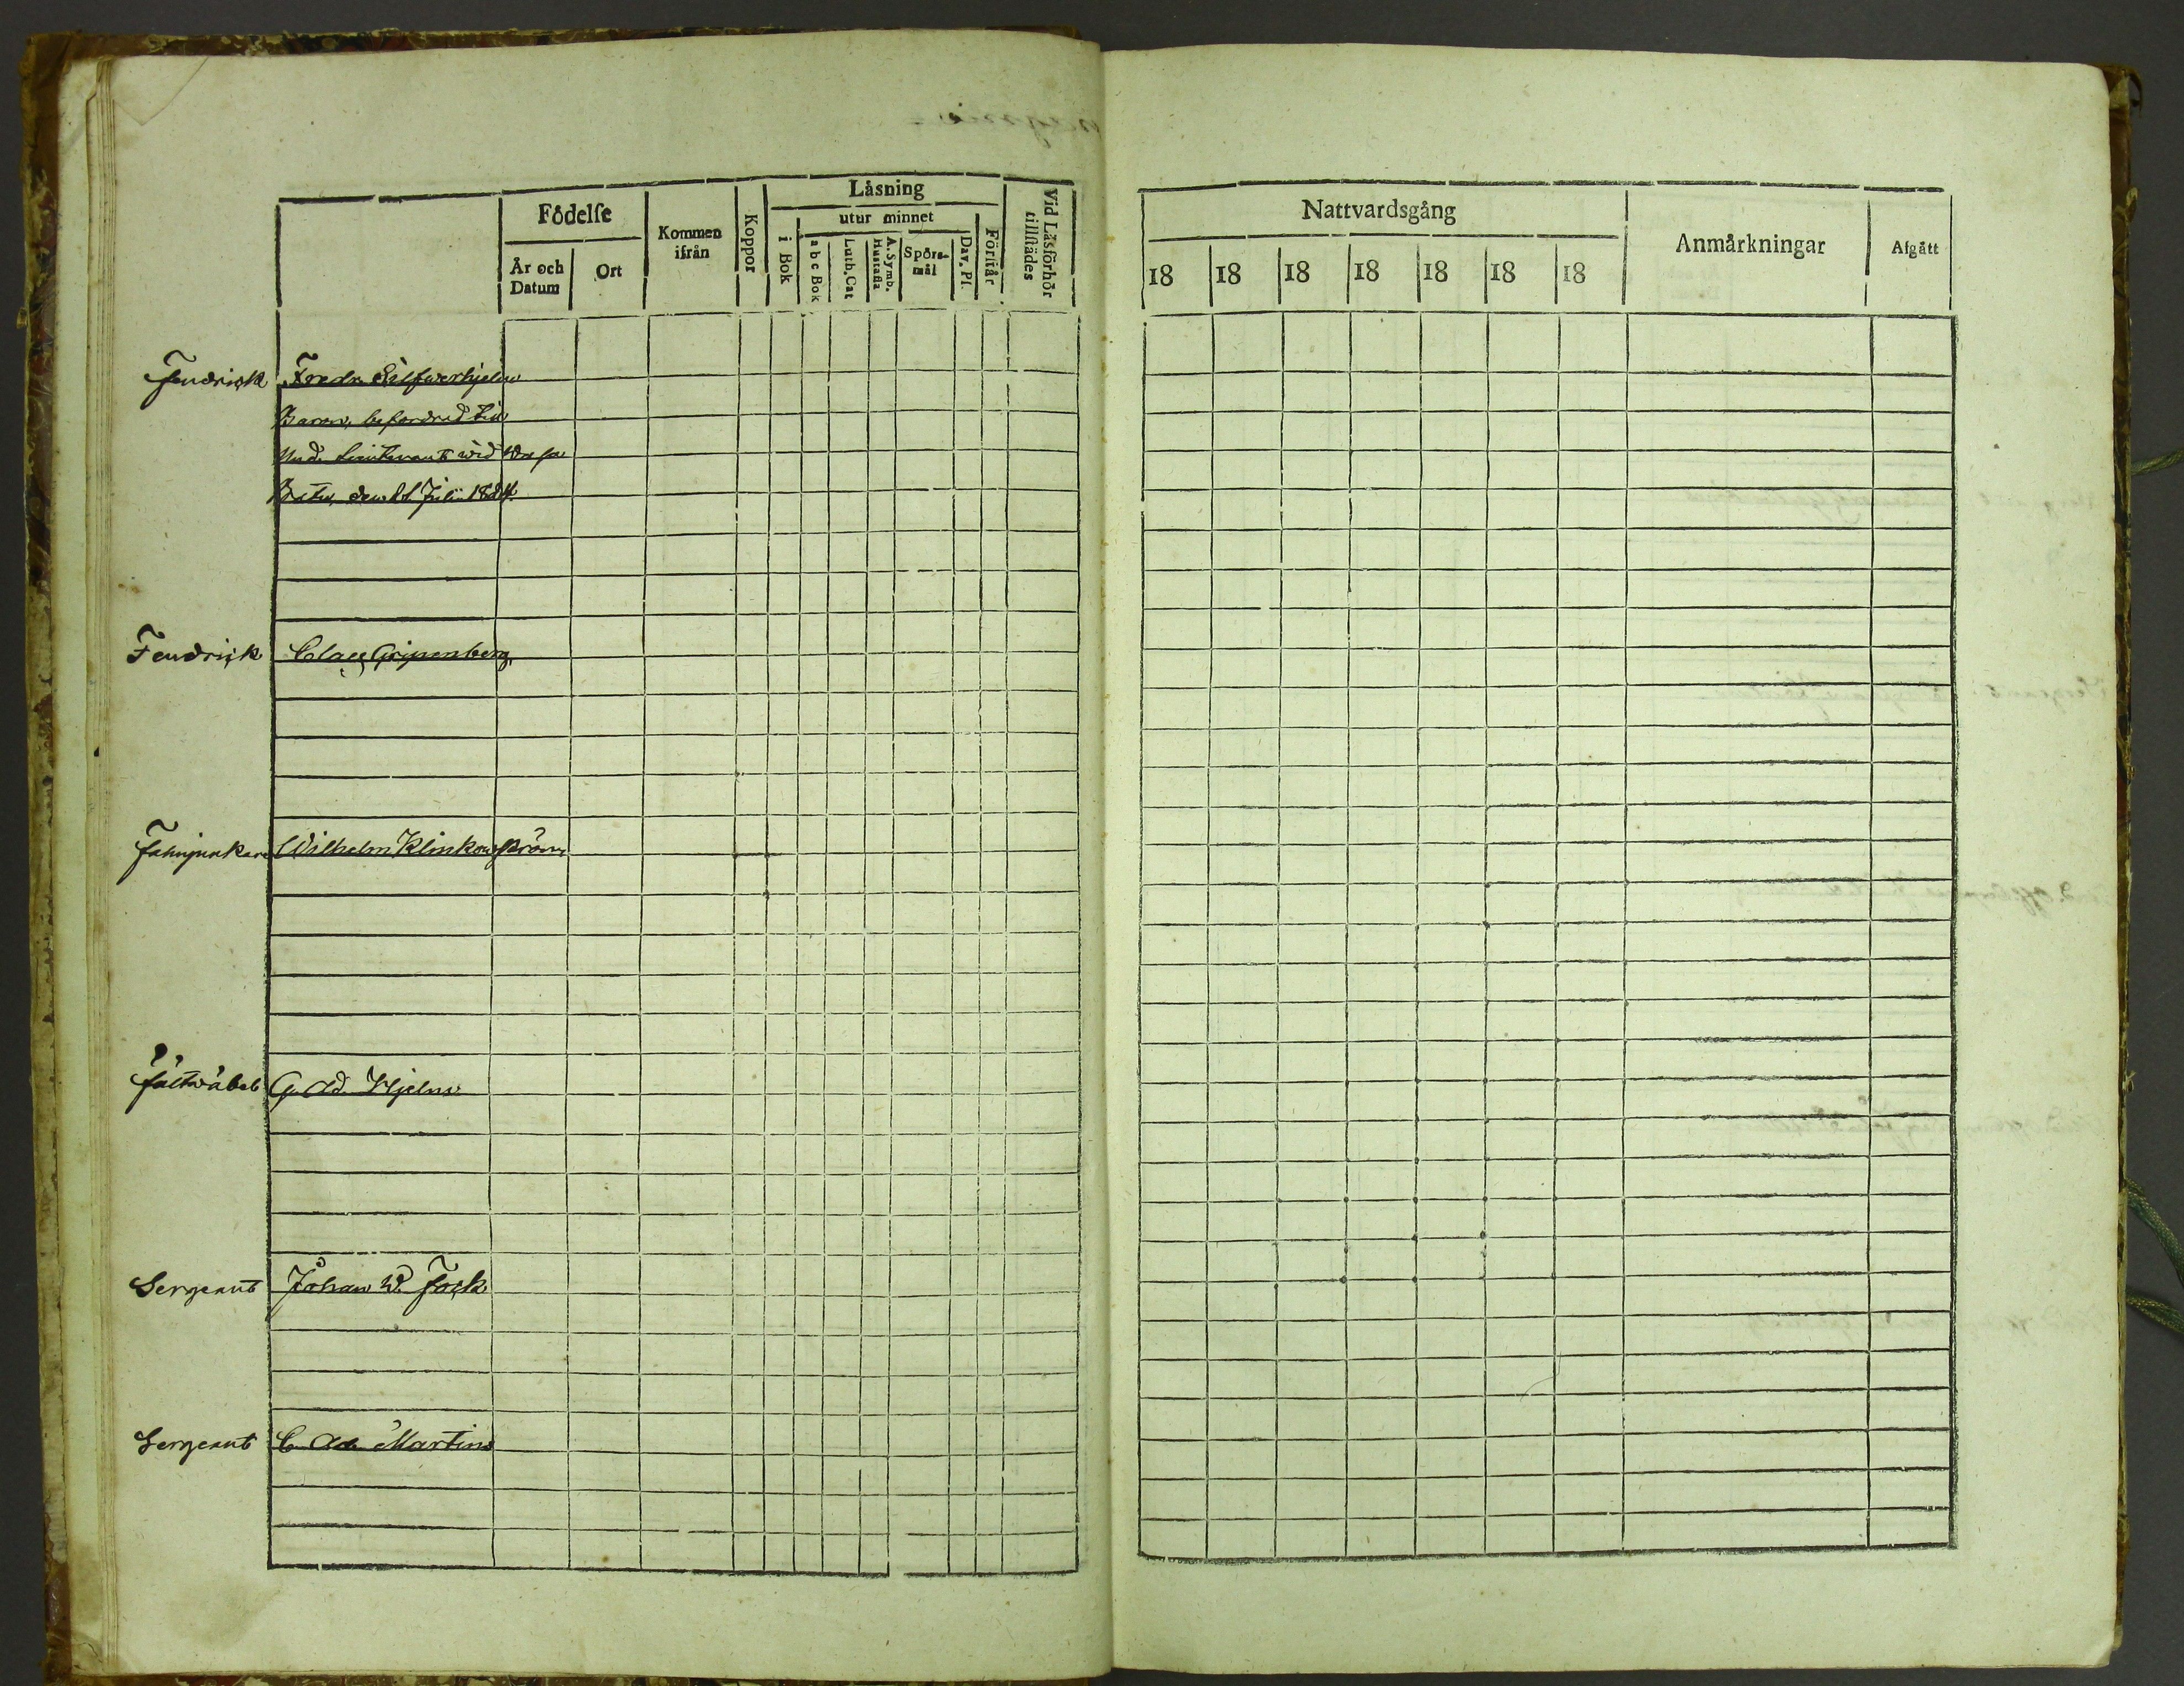 Läsning
Födelse
Kommen
ifrån
Koppor
utur minnet
Förstår
Vid Läsförhör
tillstädes
År och
Datum
Ort
i Bok
a b c Bok
Luth. Cat
A. Symb.
Hustafla
Spörs-
mål
Dav. Ps.
Nattvardsgång
Anmärkningar
Afgått
18 18 18 18 18 18 18
Fendrick Fredr. Silfwerhjelm
Baron, befordrad till
Und. Lieutenant wid Wasa
Batn, den Julii 1824.
Fendrick Claes Gripenberg
Fahnjunkare Wilhelm Klinkowström
Fältwäbel G. Ad. Hjelm
Sergeant Johan W. Fock
Sergeant C. Ad. Martin